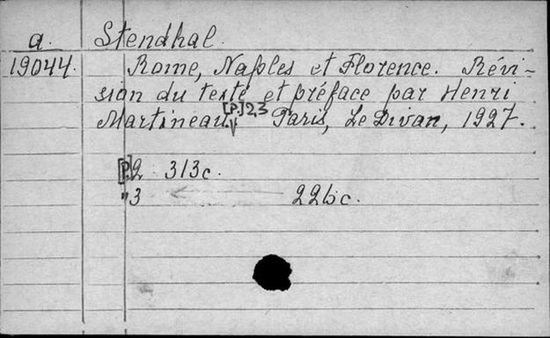 a. Stendhal.
19044. Rome, Naples et Florence. Révi-
sion du texte et préface par Henri
Martineau. [P.] 2,3 Paris, Le Divan, 1927.
[P.] 2 313c.
" 3 226c.